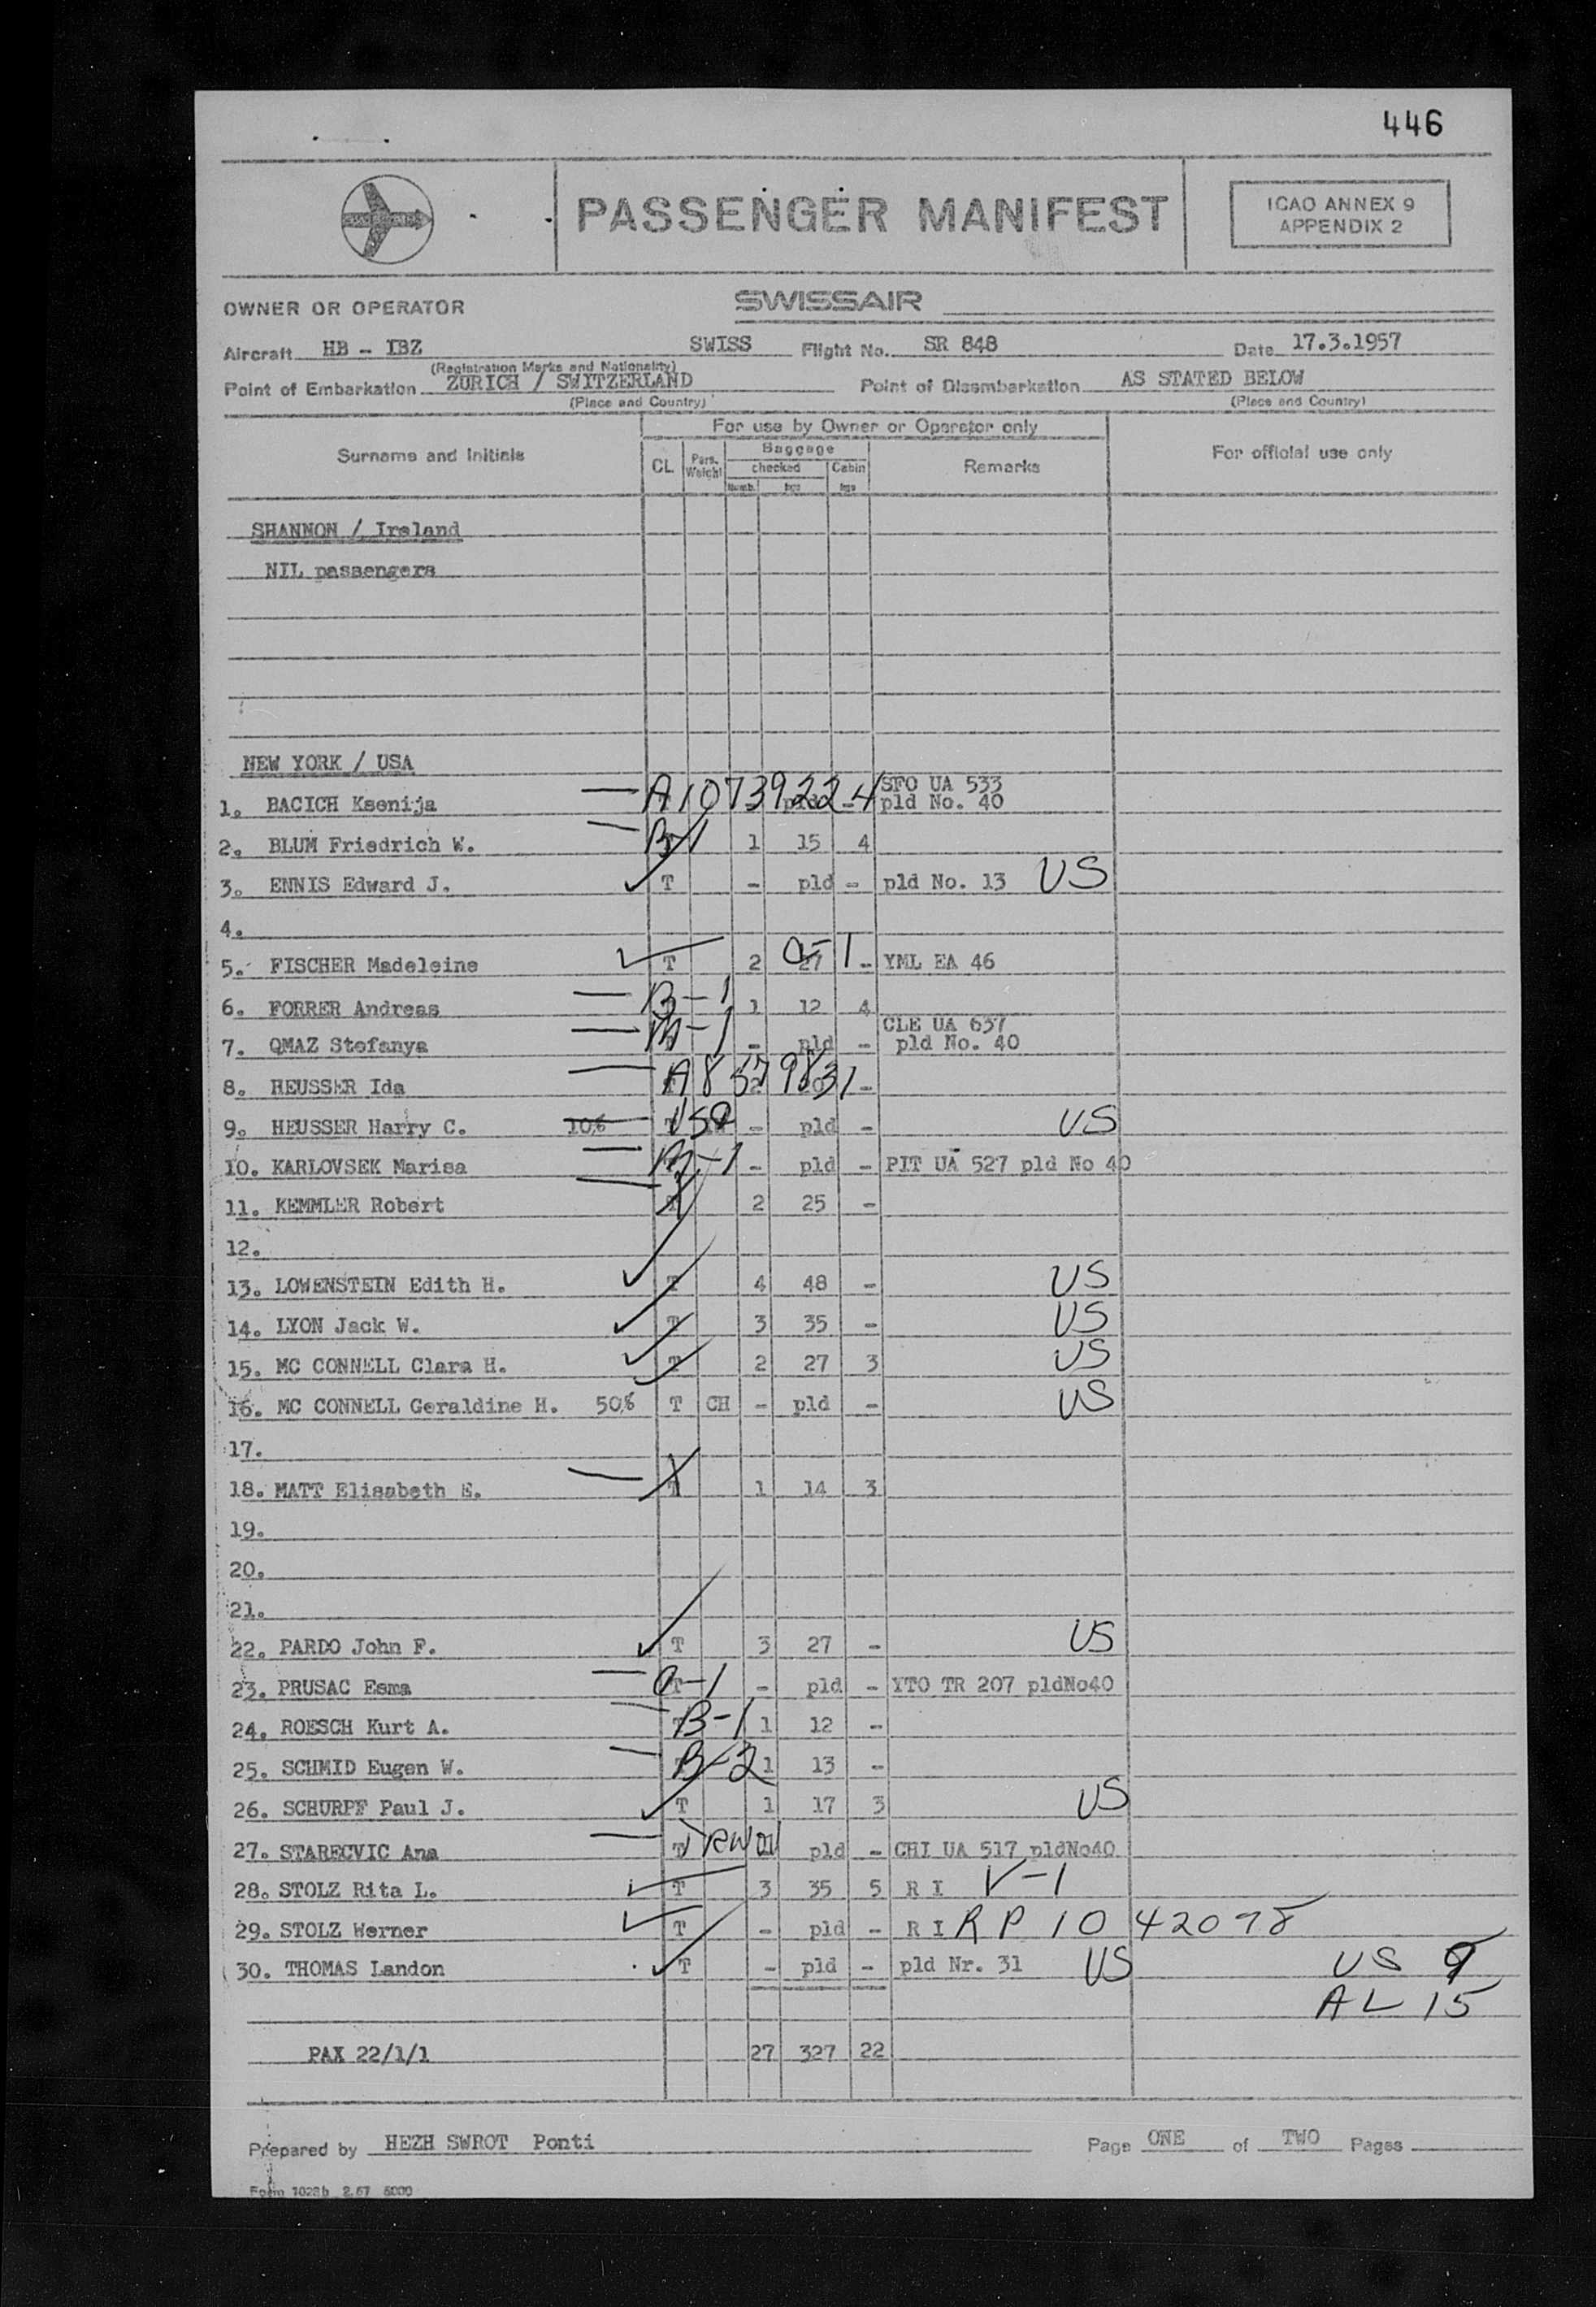 446
PASSENGER MANIFEST
ICAO ANNEX 9
APPENDIX 2
OWNER OR OPERATOR SWISSAIR
Aircraft HB - IBZ SWISS Flight No. SR 848 Date 17.3.1957
(Registration Marks and Nationality)
Point of Embarkation ZURICH / SWITZERLAND Point of Disembarkation AS STATED BELOW
(Place and Country) (Place and Country)
For use by Owner or Operator only
Surname and Initials CL Pers. Weight Baggage checked Cabin Remarks For official use only
Numb. kgs kgs
SHANNON / Ireland
NIL passengers
NEW YORK / USA
1. BACICH Ksenija A10739224 SFO UA 533
pld No. 40
2. BLUM Friedrich W. B-1 1 15 4
3. ENNIS Edward J. T - pld - pld No. 13 US
4.
5. FISCHER Madeleine T 2 27 - YML EA 46
6. FORRER Andreas B-1 1 12 4
7. QMAZ Stefanya - pld - CLE UA 637
pld No. 40
8. HEUSSER Ida A8579831 -
9. HEUSSER Harry C. 10% - pld - US
10. KARLOVSEK Marisa - pld - PIT UA 527 pld No 40
11. KEMMLER Robert T 2 25 -
12.
13. LOWENSTEIN Edith H. T 4 48 - US
14. LYON Jack W. T 3 35 - US
15. MC CONNELL Clara H. T 2 27 3 US
16. MC CONNELL Geraldine H. 50% T CH - pld - US
17.
18. MATT Elisabeth E. T 1 14 3
19.
20.
21.
22. PARDO John F. T 3 27 - US
23. PRUSAC Esma T - pld - YTO TR 207 pldNo40
24. ROESCH Kurt A. T B-1 1 12 -
25. SCHMID Eugen W. T B-2 1 13 -
26. SCHURPF Paul J. T 1 17 3 US
27. STARECVIC Ana T pld - CHI UA 517 pldNo40
28. STOLZ Rita L. T 3 35 5 R I V-1
29. STOLZ Werner T - pld - R I RP 10 42098
30. THOMAS Landon T - pld - pld Nr. 31 US US 9
AL 15
PAX 22/1/1 27 327 22
Prepared by HEZH SWROT Ponti Page ONE of TWO Pages
Form 1028b 2.57 5000